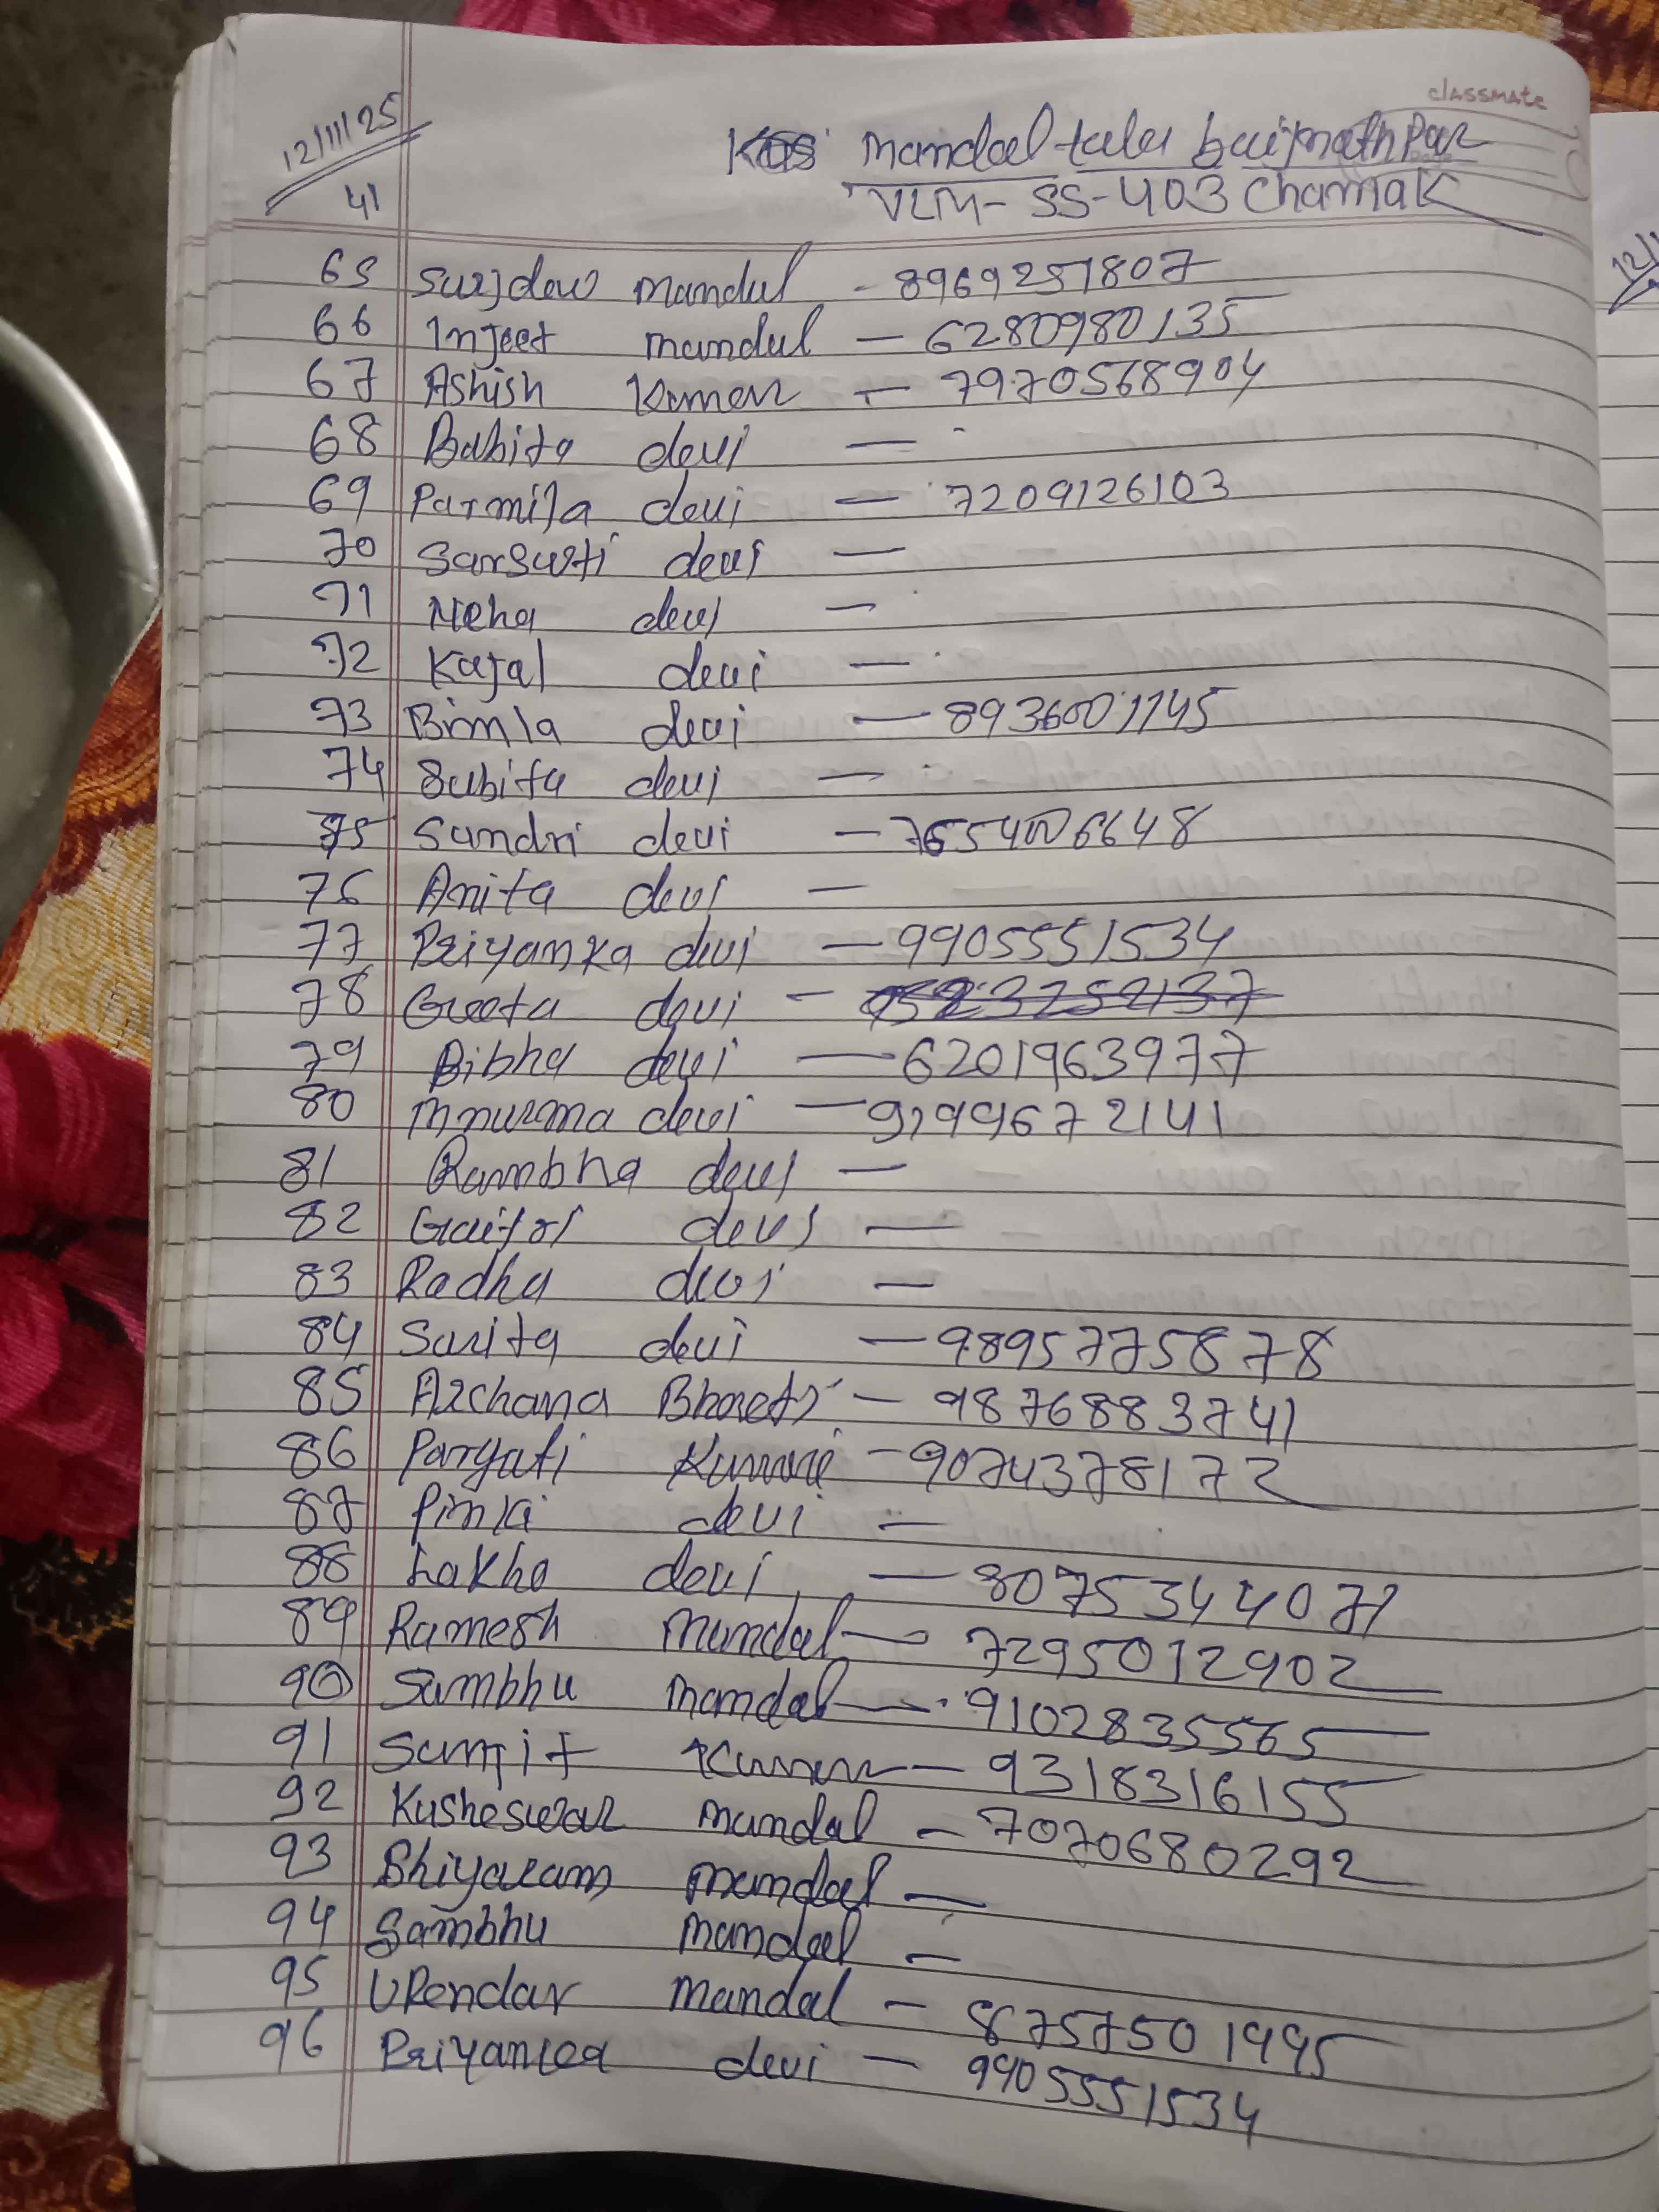 classmate
12/11/25
Mandal tala baijnathpar
41
VLM- SS-403 Chamak
65 Surjdew mandal - 8969251807
66 Injeet mandal - 6280980135
67 Ashish Kumar - 7970568904
68 Babita devi -
69 Parmila devi - 7209126103
70 Sarswti devi -
71 Neha devi -
72 Kajal devi -
73 Bimla devi - 8936001745
74 Subita devi -
75 Sundri devi - 7654006648
76 Anita devi -
77 Priyanka devi - 9905551534
78 Geeta devi - 9523252137
79 Bibha devi - 6201963977
80 devi -
81 Rambha devi -
82 devi -
83 Radha devi -
84 Sarita devi - 9895775878
85 Archana - 9876883741
86 Parvati Kumari - 9074378172
87 Pinki devi -
88 Lakho devi - 8075344071
89 Ramesh Mandal - 7295012902
90 Sambhu mandal - 9102835565
91 Sumjit Kumar - 9318316155
92 Kusheswar mandal - 7070680292
93 Shiyaram mandal -
94 Sambhu mandal -
95 UPendar Mandal - 8757501995
96 Priyanka devi - 9905551534